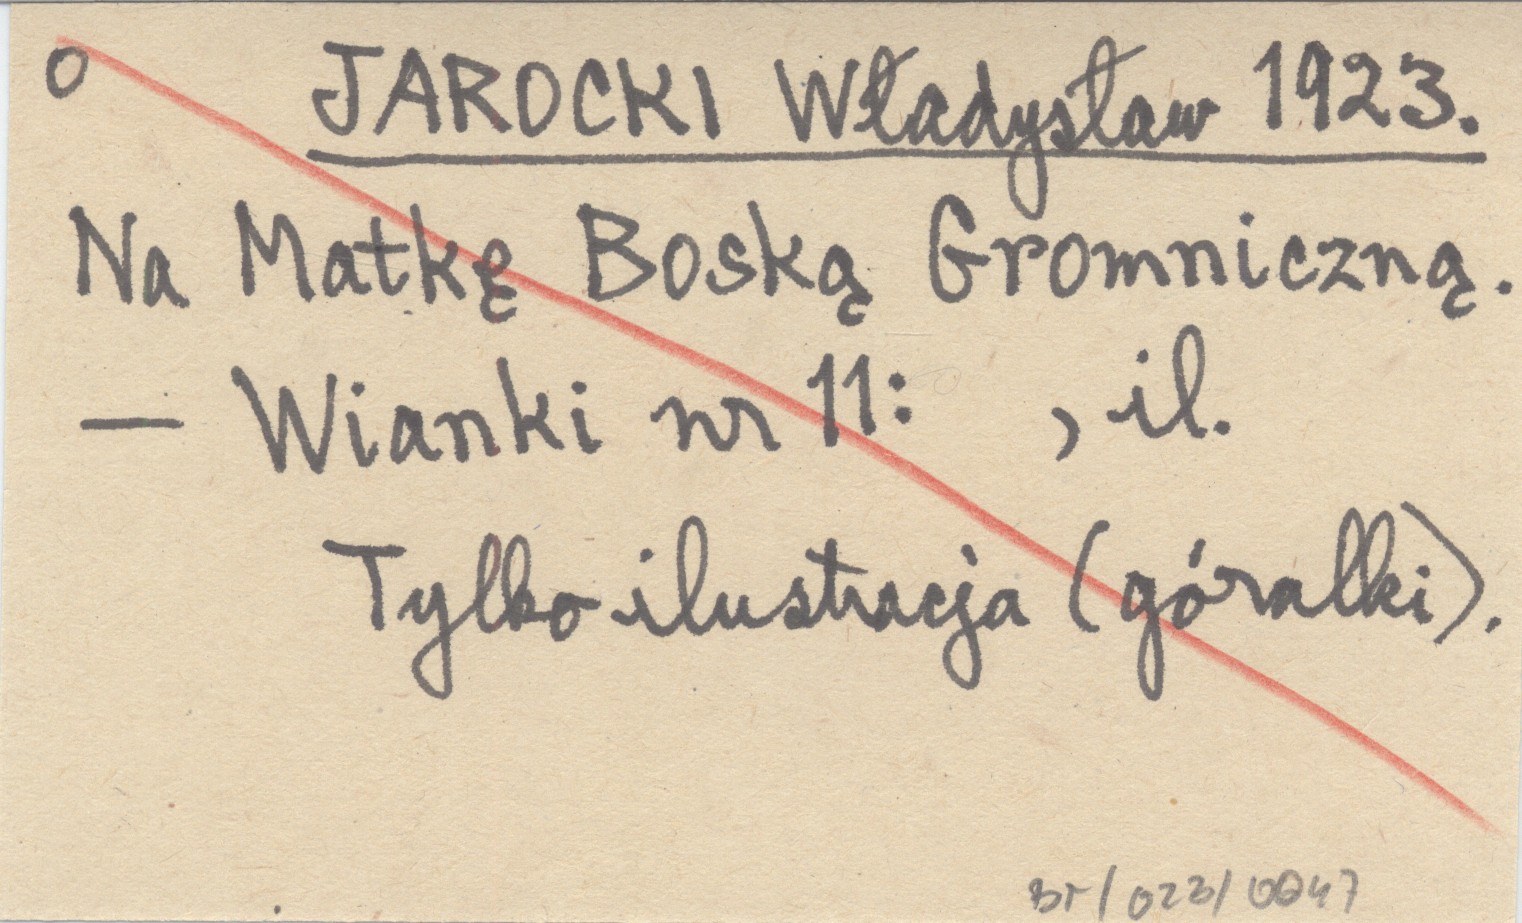 o JAROCKI Władysław 1923.
Na Matkę Boską Gromniczną.
— Wianki nr 11: , il.
Tylko ilustracja (góralki).
Br/023/0047